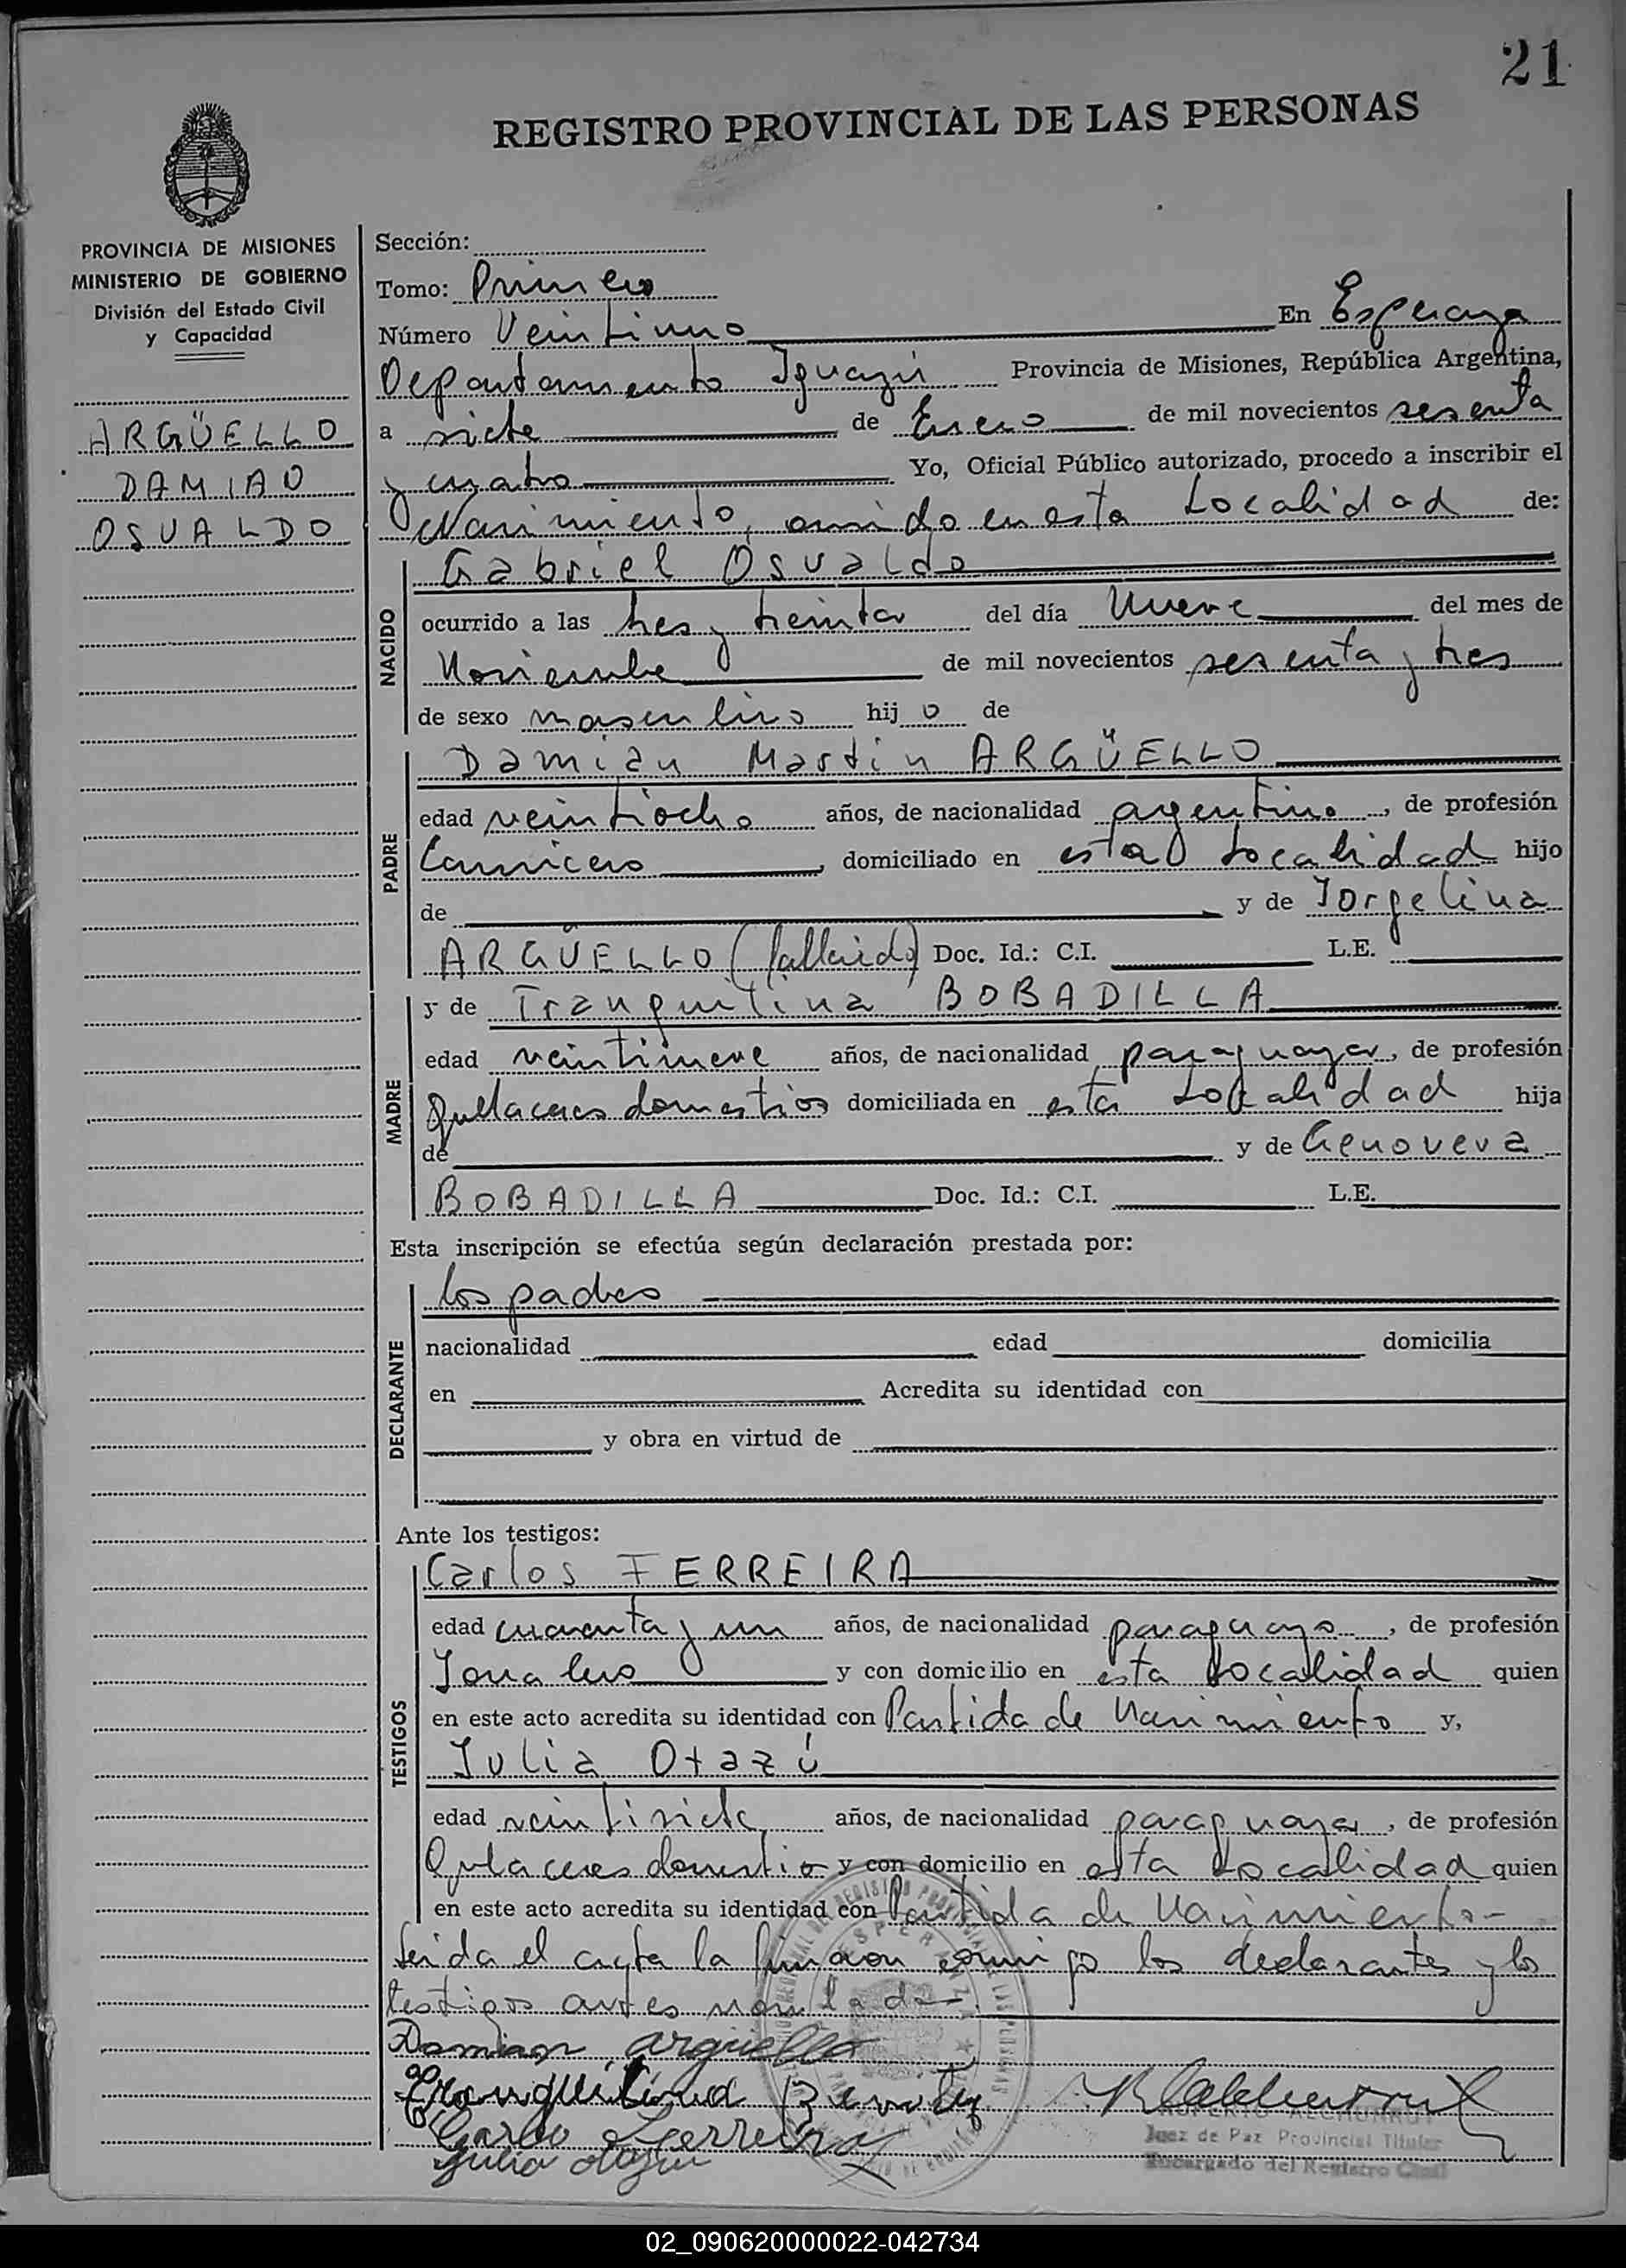 21
REGISTRO PROVINCIAL DE LAS PERSONAS
PROVINCIA DE MISIONES
MINISTERIO DE GOBIERNO
División del Estado Civil
y Capacidad
ARGÜELLO
DAMIAN
OSVALDO
Sección:
Tomo: Primero
Número Veintiuno En Esperanza
Departamento Iguazú Provincia de Misiones, República Argentina,
a siete de Enero de mil novecientos sesenta
y cuatro Yo, Oficial Público autorizado, procedo a inscribir el
Nacimiento, ocurrido en esta Localidad de:
NACIDO
Gabriel Osvaldo
ocurrido a las tres y treinta del día Nueve del mes de
Noviembre de mil novecientos sesenta y tres
de sexo masculino hijo de
PADRE
Damián Martín ARGÜELLO
edad veintiocho años, de nacionalidad argentino, de profesión
Carnicero, domiciliado en esta Localidad hijo
de y de Jorgelina
ARGÜELLO (fallecida) Doc. Id.: C.I. L.E.
MADRE
y de Tranquilina BOBADILLA
edad veintinueve años, de nacionalidad paraguaya, de profesión
Quehaceres domesticos domiciliada en esta Localidad hija
de y de Genoveva
BOBADILLA Doc. Id.: C.I. L.E.
Esta inscripción se efectúa según declaración prestada por:
DECLARANTE
los padres
nacionalidad edad domicilia
en Acredita su identidad con
y obra en virtud de
Ante los testigos:
TESTIGOS
Carlos FERREIRA
edad cuarenta y un años, de nacionalidad paraguayo, de profesión
Jornalero y con domicilio en esta Localidad quien
en este acto acredita su identidad con Partida de Nacimiento y,
Julia Otazú
edad veintisiete años, de nacionalidad paraguaya, de profesión
Quehaceres domestico y con domicilio en esta Localidad quien
en este acto acredita su identidad con Partida de Nacimiento-
Leida el acta la firman conmigo los declarantes y los
testigos antes nombrados
Damian Argüello
Tranquilina Benitez
Carlos Ferreira
Julia Otazu
Juez de Paz Provincial Titular
Encargado del Registro Civil
02_090620000022-042734